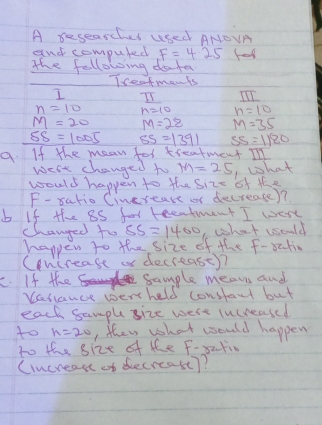 A researcher used ANOVA
and computed F = 4.25 for
the following data
Treatments
I II III
n=10 n=10 n=10
M=20 M=28 M=35
SS=1005 SS=1391 SS=1180
a. If the mean for treatment III
were changed to M=25, what
would happen to the size of the
F-ratio (increase or decrease)?
b. If the SS for treatment I were
changed to SS=1400, what would
happen to the size of the F-ratio
(increase or decrease)?
c. If the sample means and
variance were held constant but
each sample size were increased
to n=20, then what would happen
to the size of the F-ratio
(increase or decrease)?